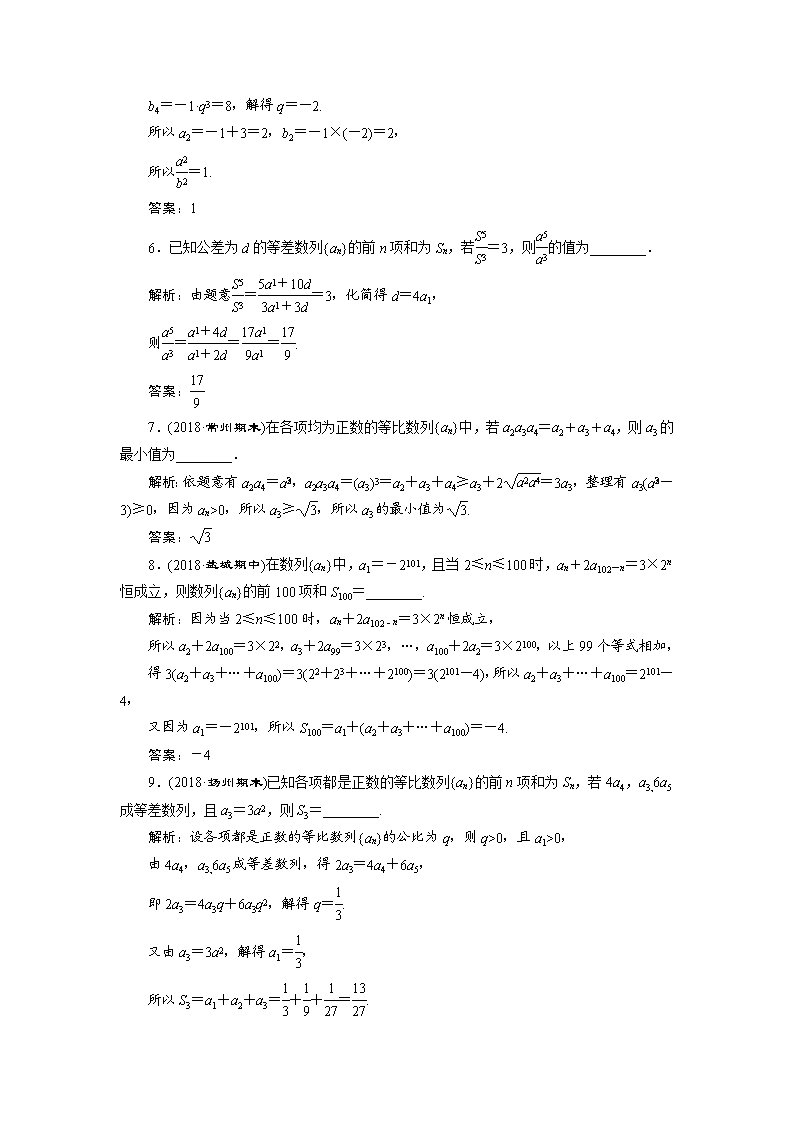 b4＝－1·q3＝8，解得q＝－2.
所以a2＝－1＋3＝2，b2＝－1×(－2)＝2，
所以a2/b2＝1.
答案：1
6．已知公差为d的等差数列{an}的前n项和为Sn，若S5/S3＝3，则a5/a3的值为________．
解析：由题意S5/S3＝5a1＋10d/3a1＋3d＝3，化简得d＝4a1，
则a5/a3＝a1＋4d/a1＋2d＝17a1/9a1＝17/9.
答案：17/9
7．(2018·常州期末)在各项均为正数的等比数列{an}中，若a2a3a4＝a2＋a3＋a4，则a3的
最小值为________．
解析：依题意有a2a4＝a23，a2a3a4＝(a3)3＝a2＋a3＋a4≥a3＋2√a2a4＝3a3，整理有a3(a23－
3)≥0，因为an>0，所以a3≥√3，所以a3的最小值为√3.
答案：√3
8．(2018·盐城期中)在数列{an}中，a1＝－2101，且当2≤n≤100时，an＋2a102－n＝3×2n
恒成立，则数列{an}的前100项和S100＝________.
解析：因为当2≤n≤100时，an＋2a102－n＝3×2n恒成立，
所以a2＋2a100＝3×22，a3＋2a99＝3×23，…，a100＋2a2＝3×2100，以上99个等式相加，
得3(a2＋a3＋…＋a100)＝3(22＋23＋…＋2100)＝3(2101－4)，所以a2＋a3＋…＋a100＝2101－
4，
又因为a1＝－2101，所以S100＝a1＋(a2＋a3＋…＋a100)＝－4.
答案：－4
9．(2018·扬州期末)已知各项都是正数的等比数列{an}的前n项和为Sn，若4a4，a3,6a5
成等差数列，且a3＝3a2，则S3＝________.
解析：设各项都是正数的等比数列{an}的公比为q，则q>0，且a1>0，
由4a4，a3,6a5成等差数列，得2a3＝4a4＋6a5，
即2a3＝4a3q＋6a3q2，解得q＝1/3.
又由a3＝3a2，解得a1＝1/3，
所以S3＝a1＋a2＋a3＝1/3＋1/9＋1/27＝13/27.